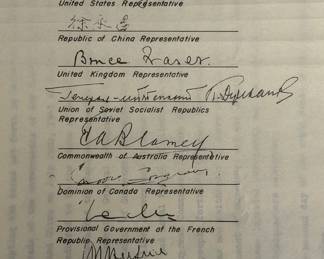 United States Representative
徐永昌
Republic of China Representative
Bruce Fraser.
United Kingdom Representative
Генерал-лейтенант К. Деревянко
Union of Soviet Socialist Republics
Representative
T A Blamey
Commonwealth of Australia Representative
Dominion of Canada Representative
Leclerc
Provisional Government of the French
Republic Representative